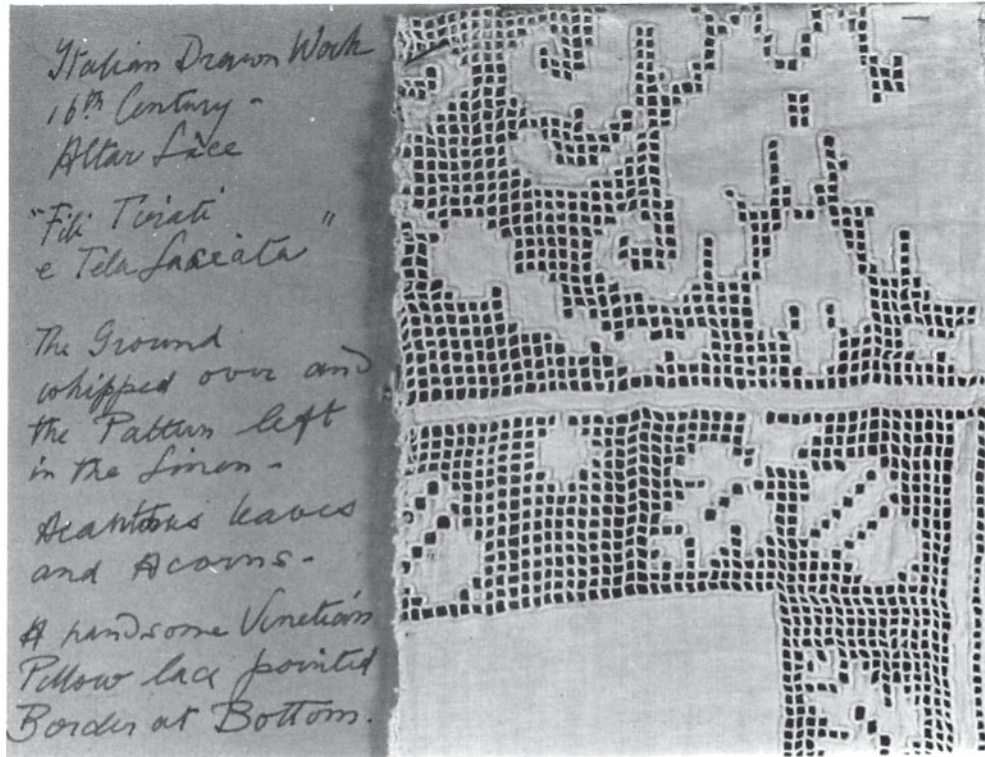 Italian Drawn Work
16th Century -
Altar Lace
"Fili Tirati "
e Tela Lasciata
The Ground
whipped over and
the Pattern left
in the Linen -
Acanthus leaves
and Acorns -
A handsome Venetian
Pillow lace pointed
Border at Bottom.